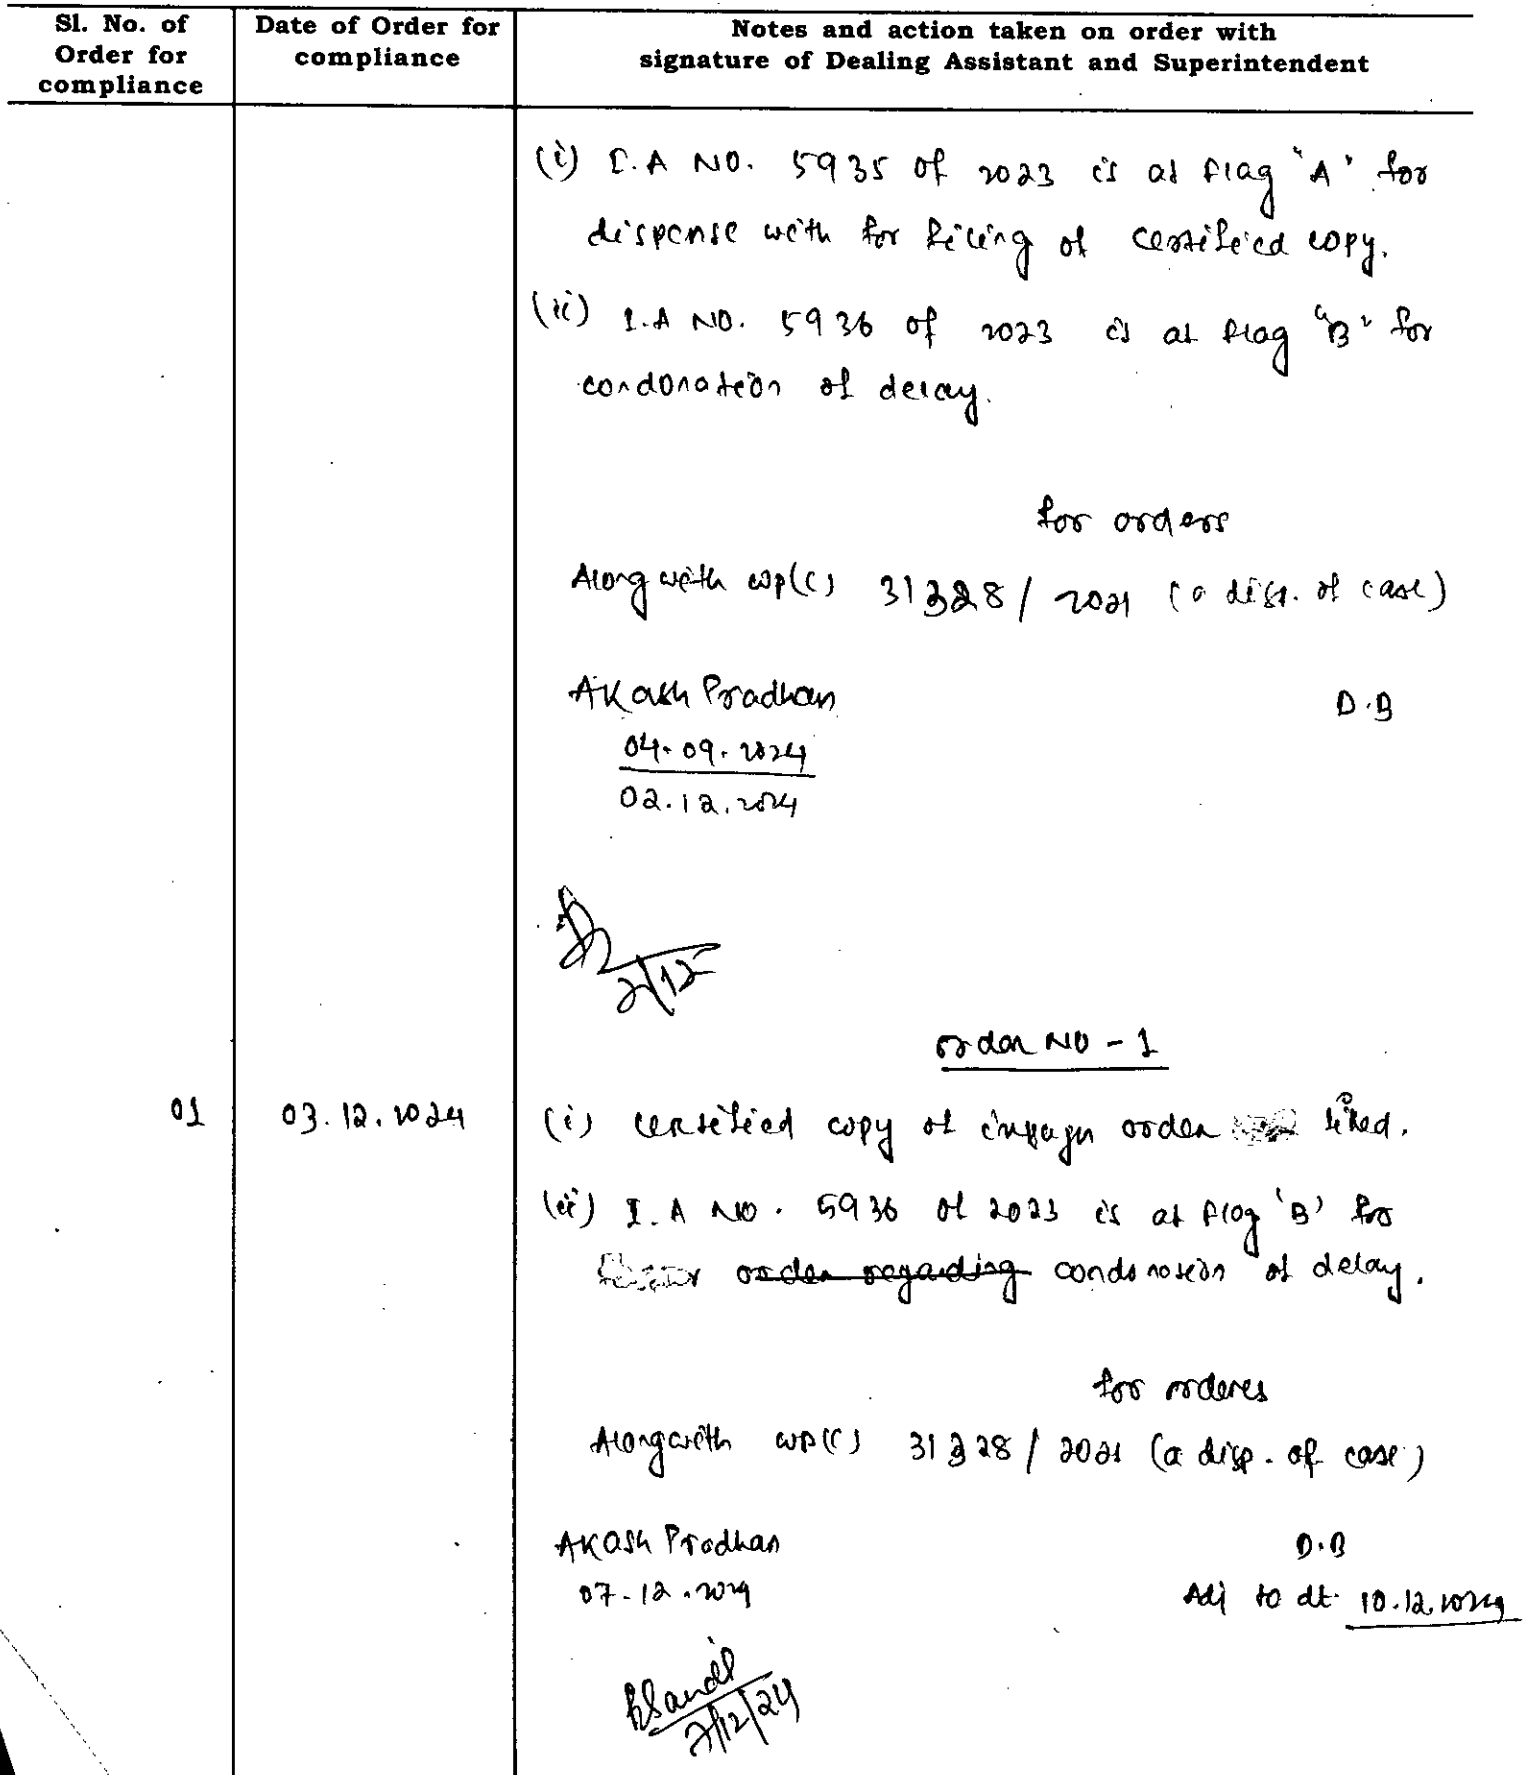 Sl. No. of Order for compliance
Date of Order for compliance
Notes and action taken on order with signature of Dealing Assistant and Superintendent
(i) I.A NO. 5935 of 2023 is at flag "A" for
dispense with for filing of certified copy.
(ii) I.A NO. 5936 of 2023 is at flag "B" for
condonation of delay.
for orders
Along with WP(C) 31328/2021 (a disp. of case)
Akash Pradhan
D.B
04.09.2024
02.12.2024
2/12
order NO - 1
01
03.12.2024
(i) certified copy of order filed.
(ii) I.A NO. 5936 of 2023 is at flag 'B' for
order regarding condonation of delay.
for orders
Alongwith WP(C) 31328/2021 (a disp. of case)
Akash Pradhan
D.B
07-12.2024
Adj to dt. 10.12.2024
7/12/24